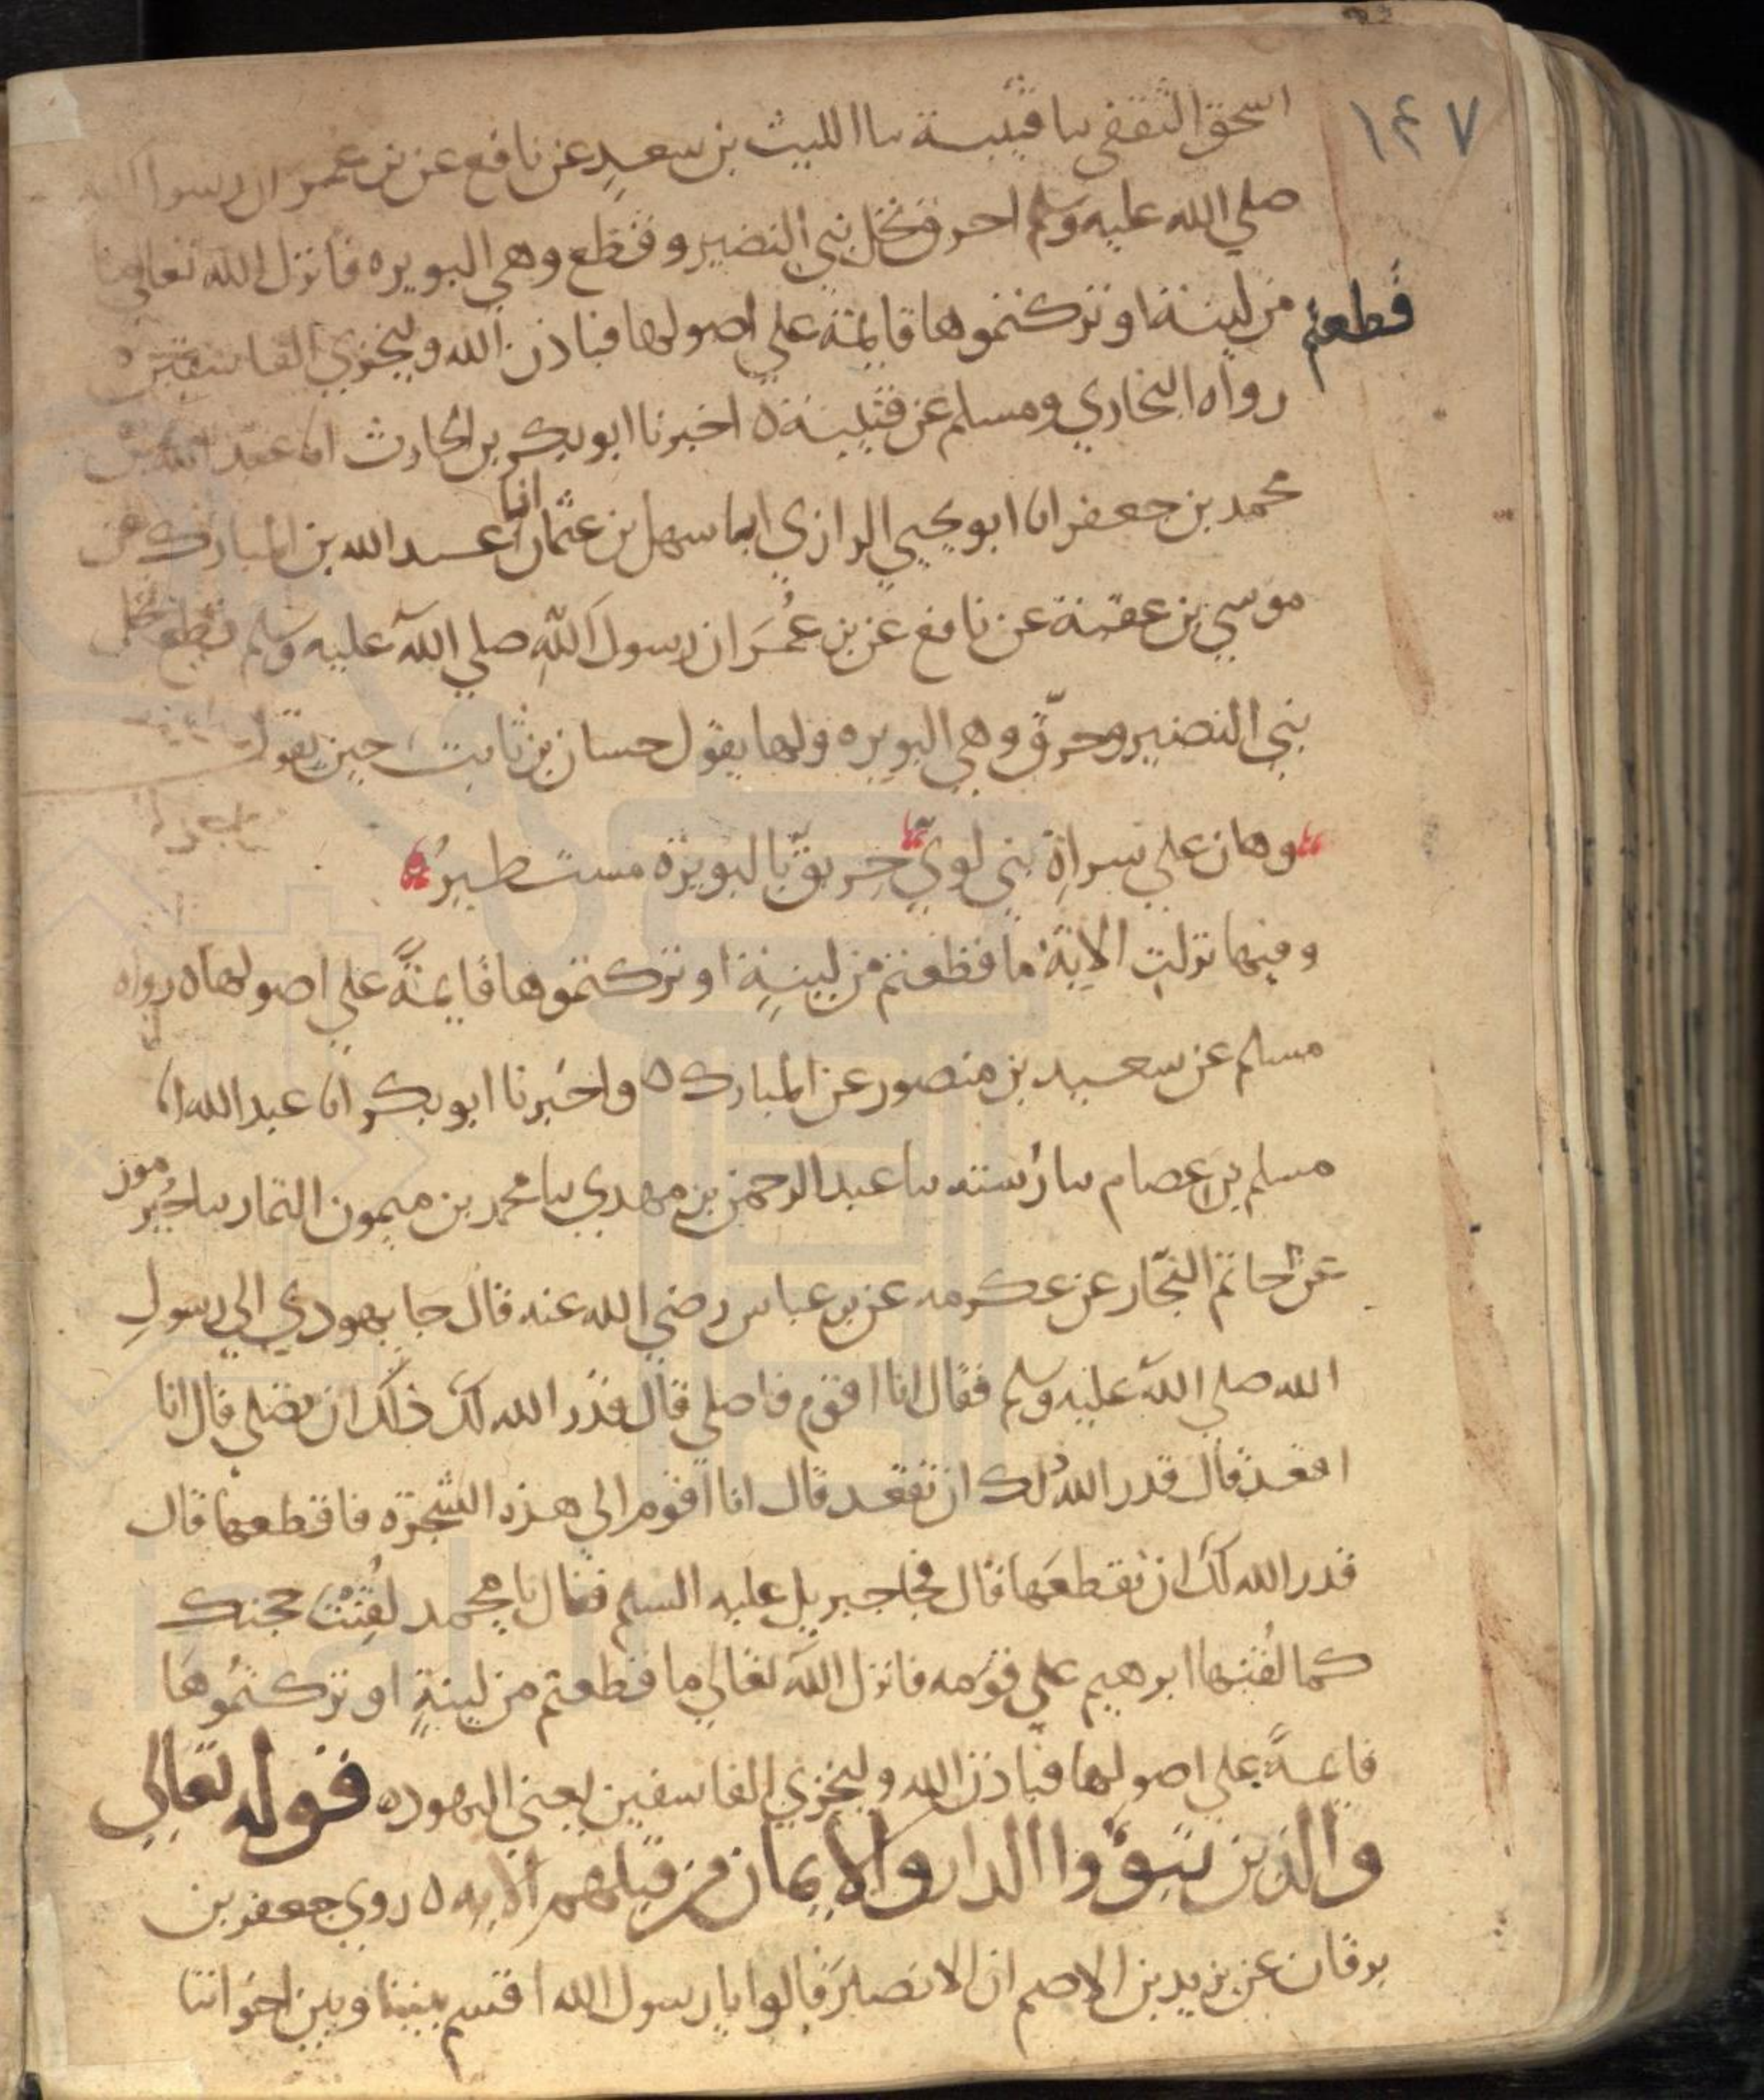 ١٤٧
اسحق الثقفي نا قتيبة نا الليث بن سعد عن نافع عن بن عمر ان رسول الله
صلي الله عليه وسلم احرق نخل بني النضير وقطع وهي البويره فانزل الله تعالي ما
قطعتم
من لينة او تركتموها قايمة علي اصولها فباذن الله وليخزي الفاسقين ه
رواه البخاري ومسلم عن قتيبة ه اخبرنا ابو بكر بن الحارث انا عبد الله بن
محمد بن جعفر انا ابو يحيي الرازي انا سهل بن عثمان انا عبد الله بن المبارك عن
موسي بن عقبة عن نافع عن بن عمر ان رسول الله صلي الله عليه وسلم قطع نخل
بني النضير وحرق وهي البويره ولها يقول حسان بن ثابت حين يقول
وهان علي سراة بني لوي حريق بالبويرة مستطير
وفيها نزلت الاية ما قطعتم من لينة او تركتموها قايمة علي اصولها ه رواه
مسلم عن سعيد بن منصور عن المبارك ه واخبرنا ابو بكر انا عبد الله انا
مسلم بن عصام نا رسته نا عبد الرحمن بن مهدي نا محمد بن ميمون التمار نا جرموز
عن حاتم النجار عن عكرمه عن بن عباس رضي الله عنه قال جا يهودي الي رسول
الله صلي الله عليه وسلم فقال انا اقوم فاصلي قال قدر الله لك ذلك ان تصلي قال انا
اقعد قال قدر الله لك ان تقعد قال انا اقوم الي هذه الشجرة فاقطعها قال
قدر الله لك ان تقطعها قال فجا جبريل عليه السلم فقال يا محمد لقنت حجتك
كما لقنها ابرهيم علي قومه فانزل الله تعالي ما قطعتم من لينة او تركتموها
قايمة علي اصولها فباذن الله وليخزي الفاسقين يعني اليهود ه قوله تعالي
والذين تبوؤا الدار والايمان من قبلهم الايه ه روي جعفر بن
برقان عن يزيد بن الاصم ان الانصار قالوا يا رسول الله اقسم بيننا وبين اخواننا